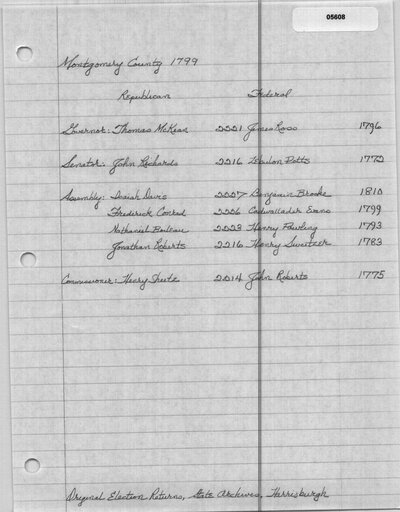 05608
Montgomery County 1799
Republican Federal
Governor: Thomas McKean 2221 James Ross 1796
Senator: John Richards 2216 Zebulon Potts 1772
Assembly: Isaiah Davis 2227 Benjamin Brooke 1810
Frederick Conrad 2226 Cadwallader Evans 1799
Nathaniel Boileau 2223 Henry Pawling 1793
Jonathan Roberts 2216 Henry Sweitzer 1783
Commissioner: Henry 2214 John Roberts 1775
Original Election Returns, State Archives, Harrisburgh